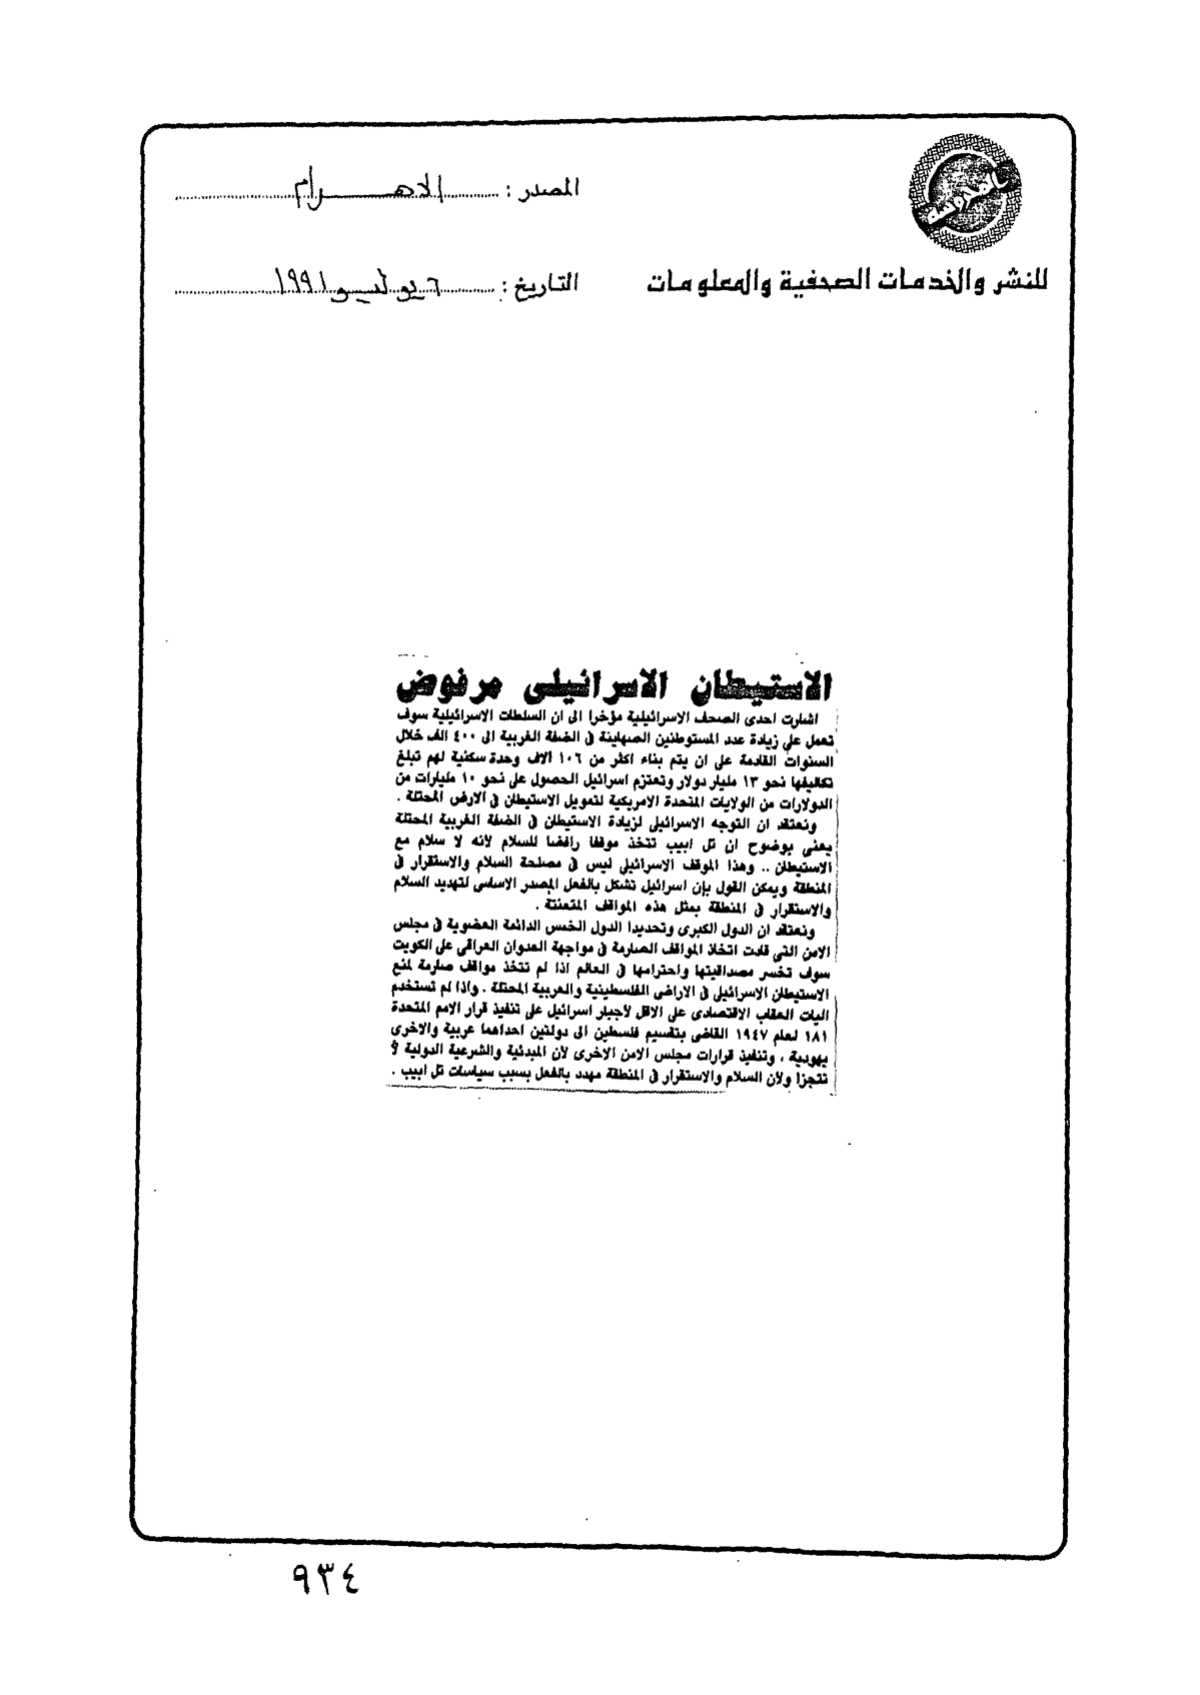 المحروسة
المصدر : الاهرام
للنشر والخدمات الصحفية والمعلومات
التاريخ : ٦ يوليو ١٩٩١
الاستيطان الاسرائيلى مرفوض
اشارت احدى الصحف الاسرائيلية مؤخرا الى ان السلطات الاسرائيلية سوف
تعمل على زيادة عدد المستوطنين الصهاينة فى الضفة الغربية الى ٤٠٠ الف خلال
السنوات القادمة على ان يتم بناء اكثر من ١٠٦ الاف وحدة سكنية لهم تبلغ
تكاليفها نحو ١٣ مليار دولار وتعتزم اسرائيل الحصول على نحو ١٠ مليارات من
الدولارات من الولايات المتحدة الامريكية لتمويل الاستيطان فى الارض المحتلة .
ونعتقد ان التوجه الاسرائيلى لزيادة الاستيطان فى الضفة الغربية المحتلة
يعنى بوضوح ان تل ابيب تتخذ موقفا رافضا للسلام لأنه لا سلام مع
الاستيطان .. وهذا الموقف الاسرائيلى ليس فى مصلحة السلام والاستقرار فى
المنطقة ويمكن القول بإن اسرائيل تشكل بالفعل المصدر الاساسى لتهديد السلام
والاستقرار فى المنطقة بمثل هذه المواقف المتعنتة .
ونعتقد ان الدول الكبرى وتحديدا الدول الخمس الدائمة العضوية فى مجلس
الامن التى قادت اتخاذ المواقف الصارمة فى مواجهة العدوان العراقى على الكويت
سوف تخسر مصداقيتها واحترامها فى العالم اذا لم تتخذ مواقف صارمة لمنع
الاستيطان الاسرائيلى فى الاراضى الفلسطينية والعربية المحتلة . واذا لم تستخدم
اليات العقاب الاقتصادى على الاقل لأجبار اسرائيل على تنفيذ قرار الامم المتحدة
١٨١ لعام ١٩٤٧ القاضى بتقسيم فلسطين الى دولتين احداهما عربية والاخرى
يهودية . وتنفيذ قرارات مجلس الامن الاخرى لأن المبدئية والشرعية الدولية لا
تتجزا ولأن السلام والاستقرار فى المنطقة مهدد بالفعل بسبب سياسات تل ابيب .
٩٣٤